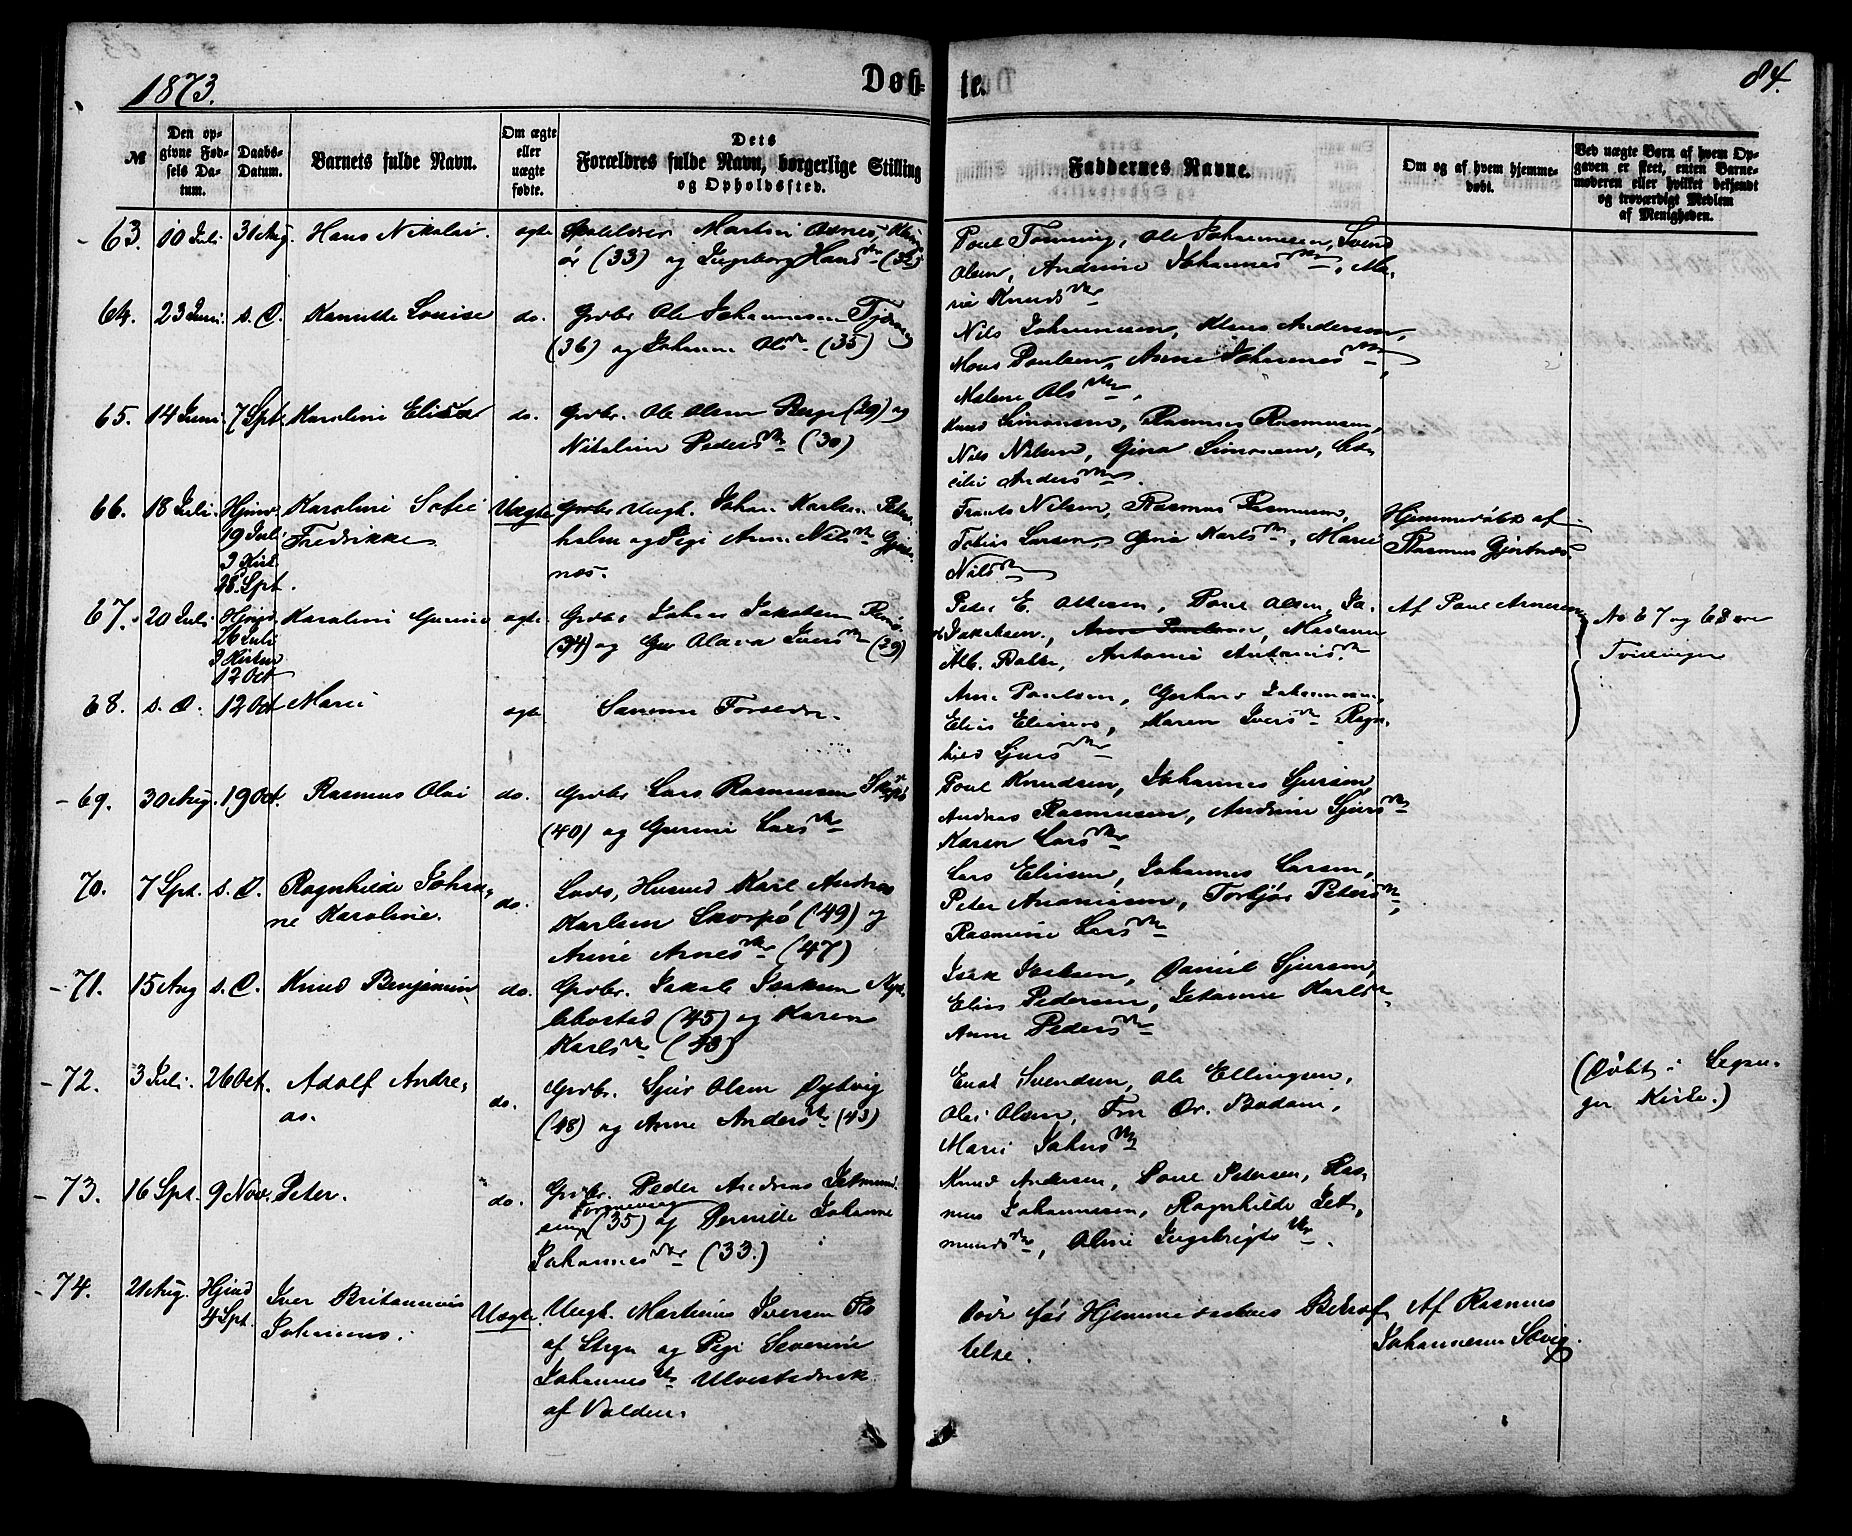 1873.
Døb-
te.
84.
№
Den op-
givne Fød-
sels Da-
tum.
Daabs-
Datum.
Barnets fulde Navn.
Om ægte
eller
uægte
fødte.
Dets
Forældres fulde Navn, borgerlige Stilling
og Opholdssted.
Faddernes Navne.
Om og af hvem hjemme-
døbt.
Ved uægte Børn af hvem Op-
gaven er skeet, enten Barne-
moderen eller hvilket bekjendt
og troværdigt Medlem
af Menigheden.
63. 10 Juli 31 Aug. Hans Nikolai. ægte Martin
(33) og Ingeborg Hansdtr (36)
Poul Tønning, Ole Johannesen, Svend
Olsen, Andrine Johannesdtr, Ma-
rie Knudsdtr
64. 23 Juni. s. D. Louise do. Grdbr Ole Johannesen
(36) og Johanne Olsdtr (35)
Nils Johannesen, Klaus Andersen,
Mons Poulsen, Anne Johannesdtr,
Malene Olsdtr.
65. 14 Juni 7 Spt. Karoline Elisa do. Grdbr. Ole Olsen Berge (29) og
Nikoline Pedersdtr (30)
Knud Simonsen, Rasmus Rasmusen,
Nils Nilsen, Gina Simonsen, Ce-
cilie Andersdtr.
66. 18 Juli. Hjmd 19 Juli Karoline Sofie Uægte Grdbr Ungk. Johan Karlsen
Fredrikke
og Pige Anne Nilsdtr
næs.
Frants Nilsen, Rasmus Rasmusen,
Tobias Larsen, Gina Karlsdtr, Marie
Nilsdtr
Hjemmedøbt af
Rasmus Gjertnæs.
67. 20 Juli. Hjmd 26 Juli I Kirken 12 Oct Karoline Gurine ægte Grdbr Johan Jakobsen
(34) og Olava Iversdtr (29)
Peter E. Ottesen, Poul Olsen, Ja.
Jakobsen, Madame
Alb. Balke, Antonie Antonisdtr.
Af Poul Arnesen
No 67 og 68 ere
Tvillinger
68. s. D. 12 Oct Marie ægte Samme Forældre.
Arne Poulsen, Gerhard Johannesen,
Elias Eliasen, Karen Iversdtr Ragn-
hild Sjursdtr
69. 30 Aug. 19 Oct. Rasmus Olai do. Grdbr Lars Rasmusen
(40) og Gurine Larsdtr
Poul Knudsen, Johannes Sjursen,
Andreas Rasmusen, Andrine Sjursdtr
Karen Larsdtr
70. 7 Spt. s. D. Ragnhilde Johan-
ne Karoline. do. Lods, Husmd Karl Andreas
Karlsen Skorpø (49) og
Anne Arnesdtr (47)
Lars Eliasen, Johannes Larsen,
Peter Ananiasen, Torbjør Petersdtr,
Rasmine Larsdtr
71. 15 Aug s. D. Knud Benjamin do. Grdbr. Jakob Isaksen Myk-
lebostad (45) og Karen
Karlsdtr (40)
Isak Isaksen, Daniel Sjursen,
Elias Pedersen, Johanne Karlsdtr
Anne Pedersdtr
72. 3 Juli. 26 Oct. Adolf Andre-
as. do. Grdbr. Sjur Olsen Dybvig
(48) og Anne Andersdtr (43)
Svendsen, Ole Ellingsen,
Olai Olsen, Fru Dr. Bodani,
Marie
(Døbt i
Kirke.)
73. 16 Spt. 9 Nov. Peter. do. Grdbr. Peder Andreas Jetmund-
sen (35) og Pernille Johanne
Johannesdtr (33.)
Knud Andersen, Poul Petersen, Ras-
mus Johannesen, Ragnhilde Jet-
mundsdtr, Oline Ingebrigtsdtr.
74. 21 Aug. Hjmd 4 Spt. Iver Britannius
Johannes. Uægte. Ungk. Martinus Iversen
af Stryn og Pige Severine
Johannesdtr Ulvestadvik
af Volden.
Døde før Hjemmedaabens Bekræf-
telse.
Af Rasmus
Johannesen Sævig.